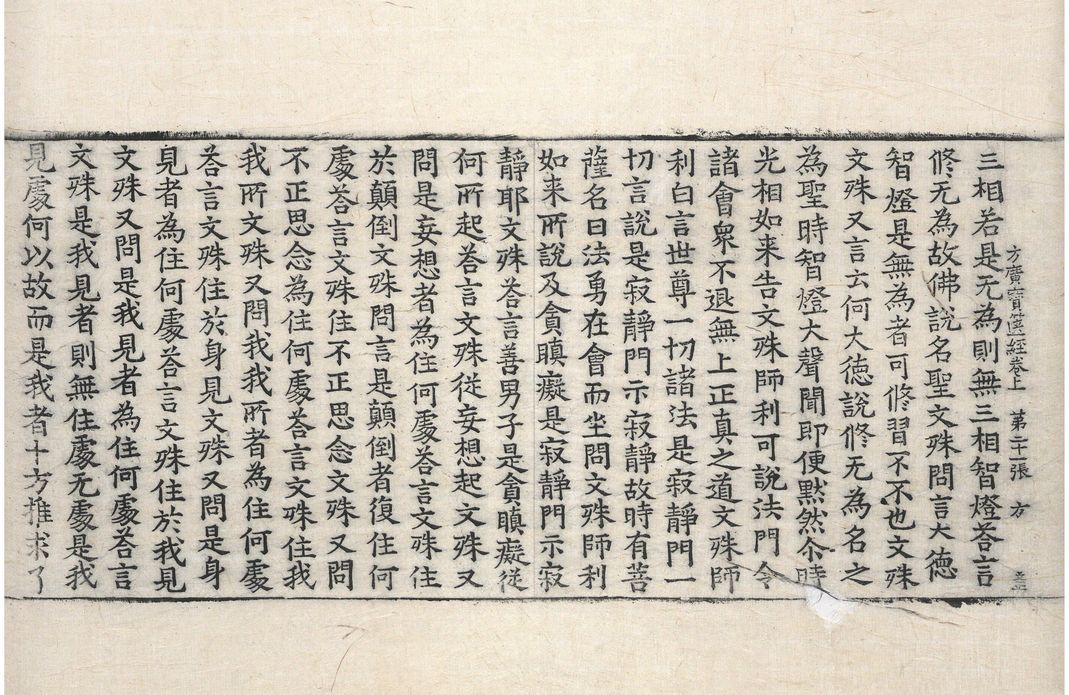 方廣寶篋經卷上 第二十一張 方
三相若是无為則無三相智燈荅言
修无為故佛說名聖文殊問言大德
智燈是無為者可修習不不也文殊
文殊又言云何大德說修无為名之
為聖時智燈大聲聞即便默然尒時
光相如来告文殊師利可說法門令
諸會衆不退無上正真之道文殊師
利白言世尊一切諸法是寂靜門一
切言說是寂靜門示寂靜故時有菩
薩名曰法勇在會而坐問文殊師利
如来所說及貪瞋癡是寂靜門示寂
靜耶文殊荅言善男子是貪瞋癡従
何所起荅言文殊従妄想起文殊又
問是妄想者為住何處荅言文殊住
於顛倒文殊問言是顛倒者復住何
處荅言文殊住不正思念文殊又問
不正思念為住何處荅言文殊住我
我所文殊又問我我所者為住何處
荅言文殊住於身見文殊又問是身
見者為住何處荅言文殊住於我見
文殊又問是我見者為住何處荅言
文殊是我見者則無住處无處是我
見處何以故而是我者十方推求了